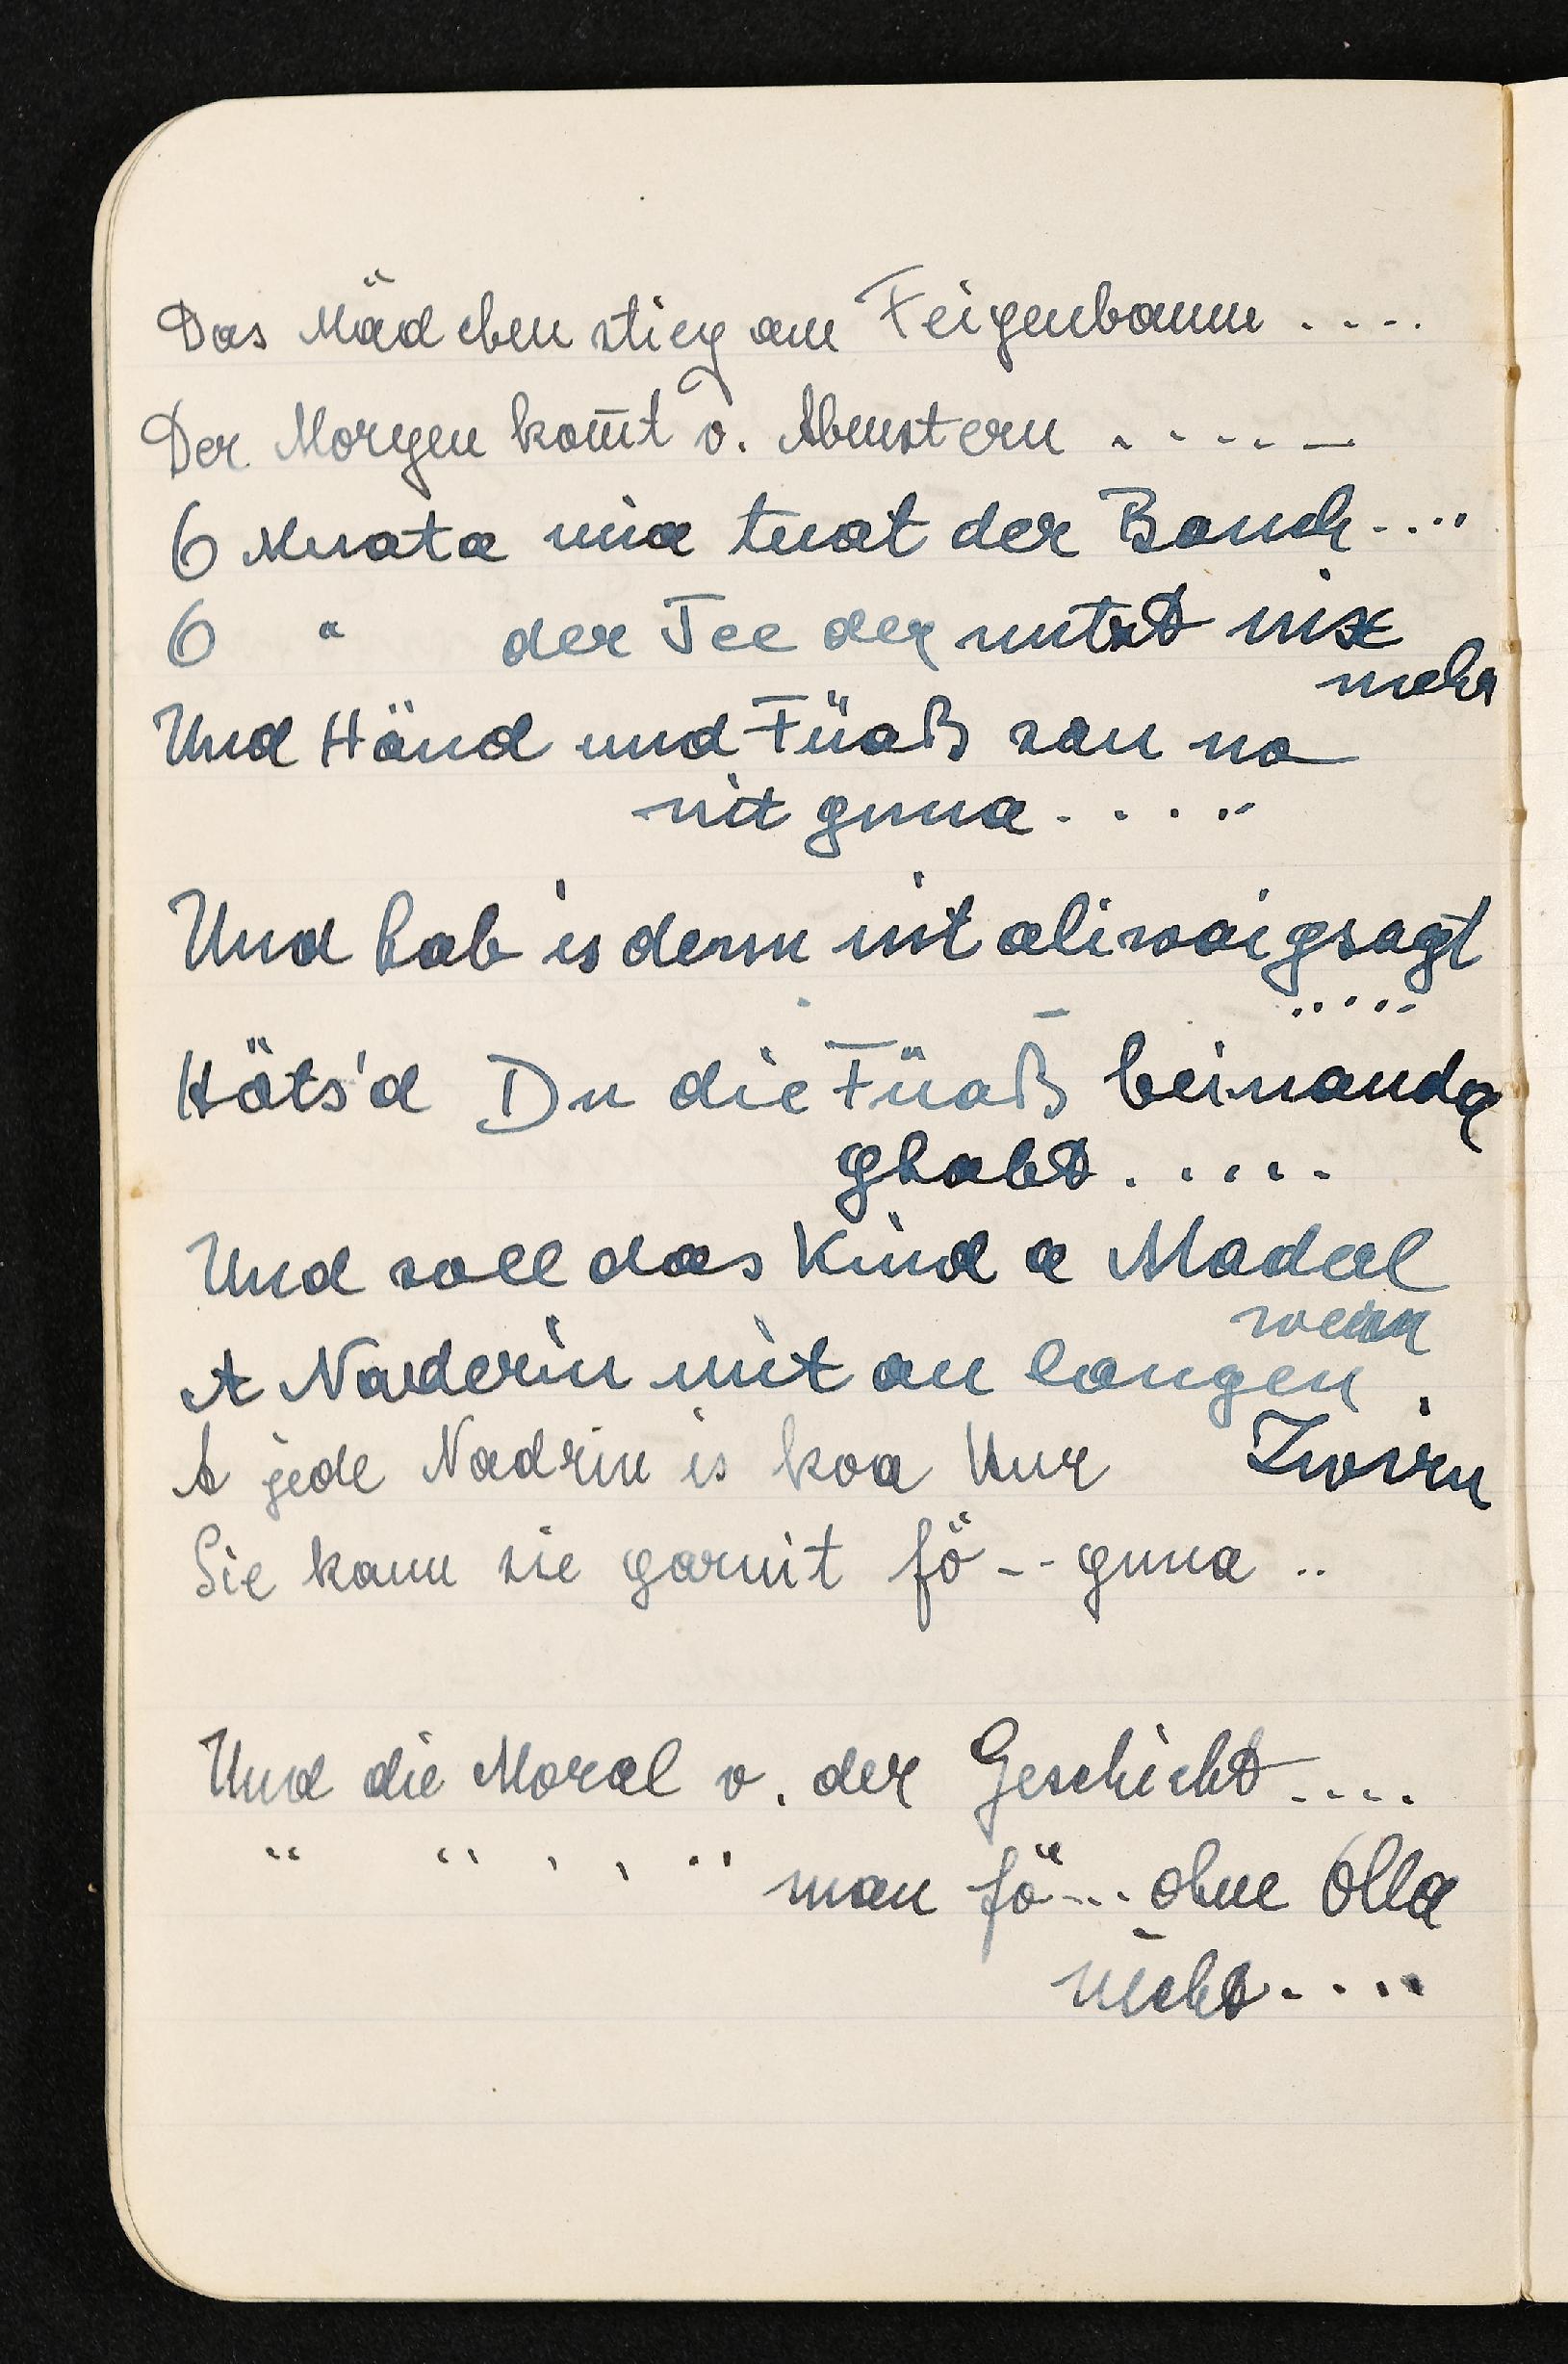 Das Mädchen stieg am Feigenbaum ....
Der Morgen kom̄t v. Abenstern . . . . . —
6 Muata mia tuat der Bauch ....
6 " der Tee der nutzt nix
mehr
Und Händ und Füaß san no
nit gnua . . . . .
Und hab is denn nit aliwai gsagt
.....
Häts'd Du die Füaß beinanda
ghabt . . . . .
Und soll das Kind a Maderl
wern
A Naderin mit an langen
Zwirn
A jede Nadrin is koa Hur
Sie kann sie garnit fö -- gnua ..
Und die Moral v. der Geschicht ....
" " " " " man fö ... ohne Olla
nicht ....